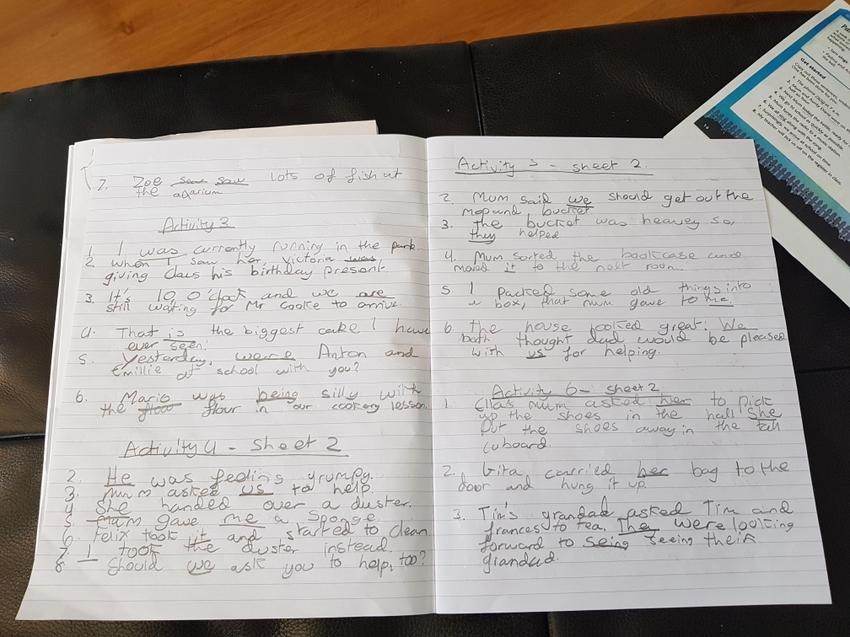 7. Zoe saw lots of fish at
the aqarium
Activity 3
1. I was currently running in the park.
2. When I saw her, Victoria was
giving Claus his birthday present.
3. It's 10 O'clock and we are
still waiting for Mr Cooke to arrive.
4. That is the biggest cake I have
ever seen!
5. Yesterday, were Anton and
Emillie at school with you?
6. Mario was being silly with
the flour in our cookery lesson.
Activity 4 - Sheet 2
2. He was feeling grumpy.
3. Mum asked us to help.
4. She handed over a duster.
5. Mum gave me a sponge.
6. Felix took it and started to clean.
7. I took the duster instead.
8. Should we ask you to help, too?
Activity 5 - sheet 2.
2. Mum said we should get out the
mop and bucket
3. The bucket was heavey so,
they helped
4. Mum sorted the bookcase and
moved it to the next room.
5 I packed some old things into
a box, that mum gave to me.
6 the house looked great. We
both thought dad would be pleased
with us for helping.
Activity 6 - sheet 2
1. Ellas mum asked her to pick
up the shoes in the hall. She
put the shoes away in the tall
cuboard.
2. Gita carried her bag to the
door and hung it up.
3. Tim's grandad asked Tim and
frances to tea. They were looking
forward to seing seeing their
grandad.
Get started